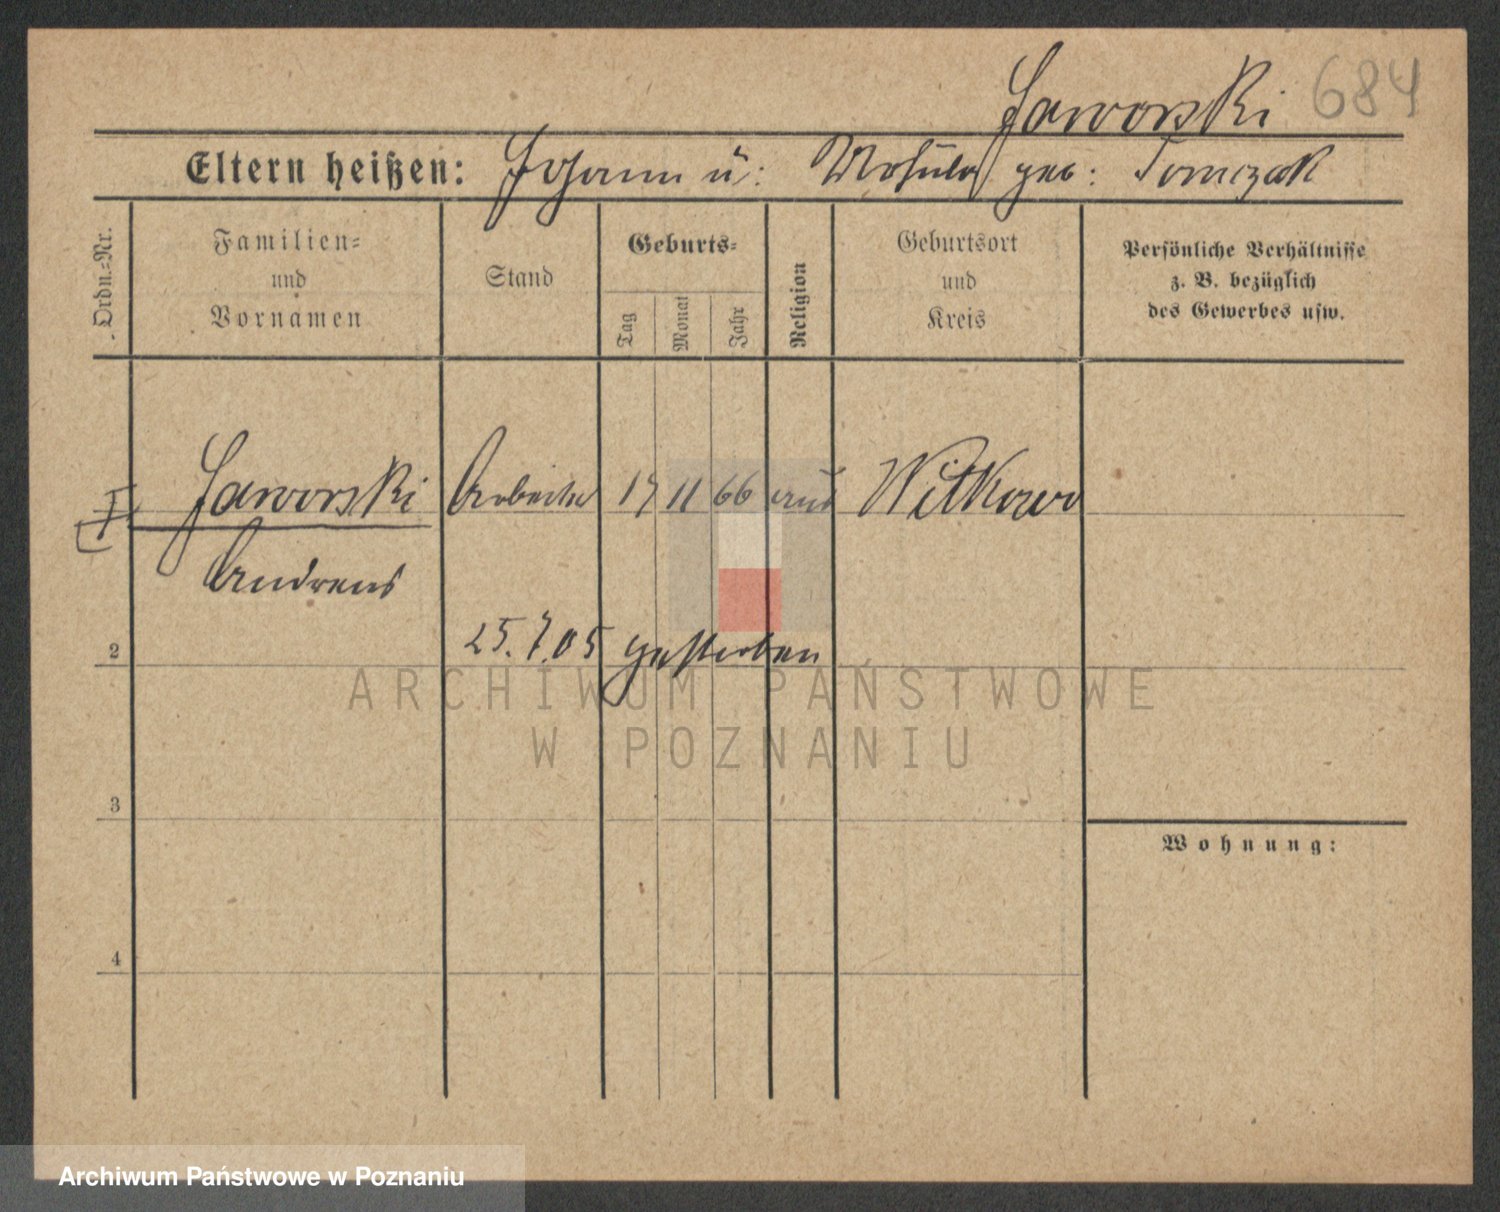 Jaworski 684
Eltern heißen: Johann u: Ursula geb: Tomczak
Ordn.-Nr.
Familien-
und
Vornamen
Stand
Geburts-
Tag
Monat
Jahr
Religion
Geburtsort
und
Kreis
Persönliche Verhältnisse
z. B. bezüglich
des Gewerbes usw.
Jaworski Arbeiter 17 11 66 Witkowo
Andreas
2
25.7.05 gestorben
ARCHIWUM PAŃSTWOWE
W POZNANIU
3
Wohnung:
4
Archiwum Państwowe w Poznaniu